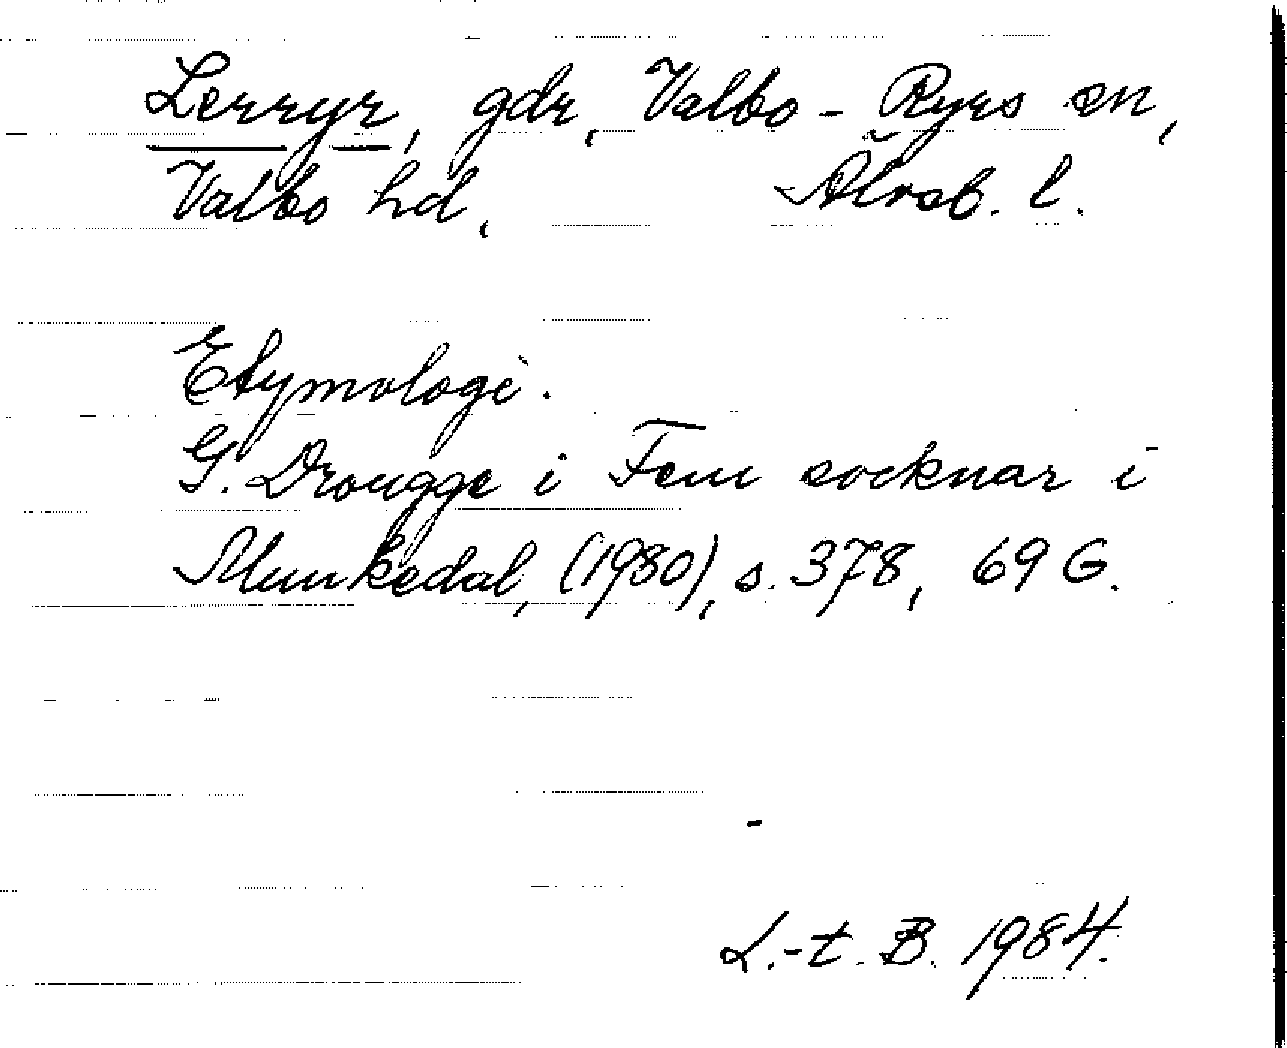 Lerryr, gdr, Valbo-Ryrs sn,
Valbo hd, Älvsb. l.
Etymologi.
G. Drougge i Fem socknar i
Munkedal, (1980), s. 378, 69 G.
L.-t. B. 1984.